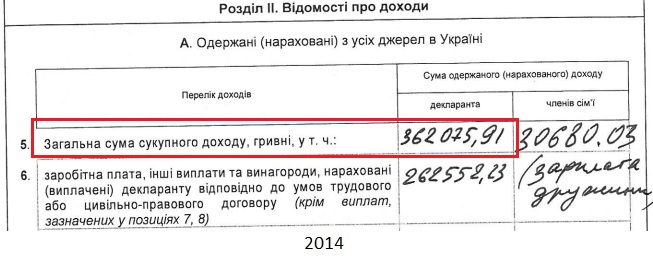 Розділ II. Відомості про доходи
А. Одержані (нараховані) з усіх джерел в Україні
Перелік доходів
Сума одержаного (нарахованого) доходу
декларанта
членів сім'ї
5. Загальна сума сукупного доходу, гривні, у т. ч.: 362 075,91 30680.03
6. заробітна плата, інші виплати та винагороди, нараховані 262552,23 (зарплата
(виплачені) декларанту відповідно до умов трудового дружини)
або цивільно-правового договору (крім виплат,
зазначених у позиціях 7, 8)
2014